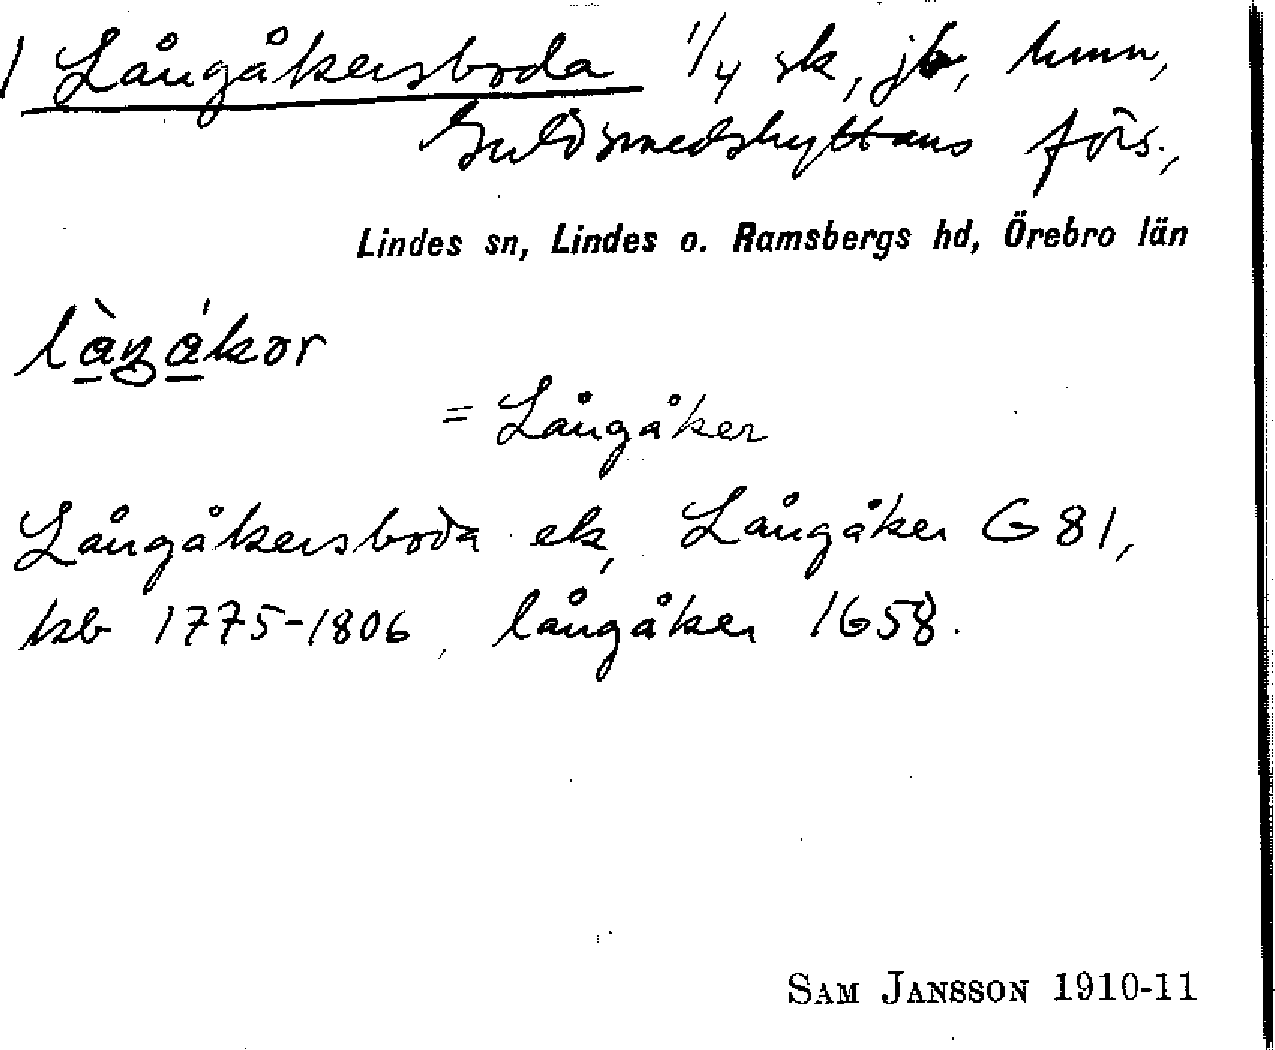 1 Långåkersboda 1/4 sk, jb, hmn,
Guldsmedshyttans förs.,
Lindes sn, Lindes o. Ramsbergs hd, Örebro län
= Långåker
Långåkersboda ek, Långåker G 81,
kb 1775-1806, långåker 1658.
SAM JANSSON 1910-11